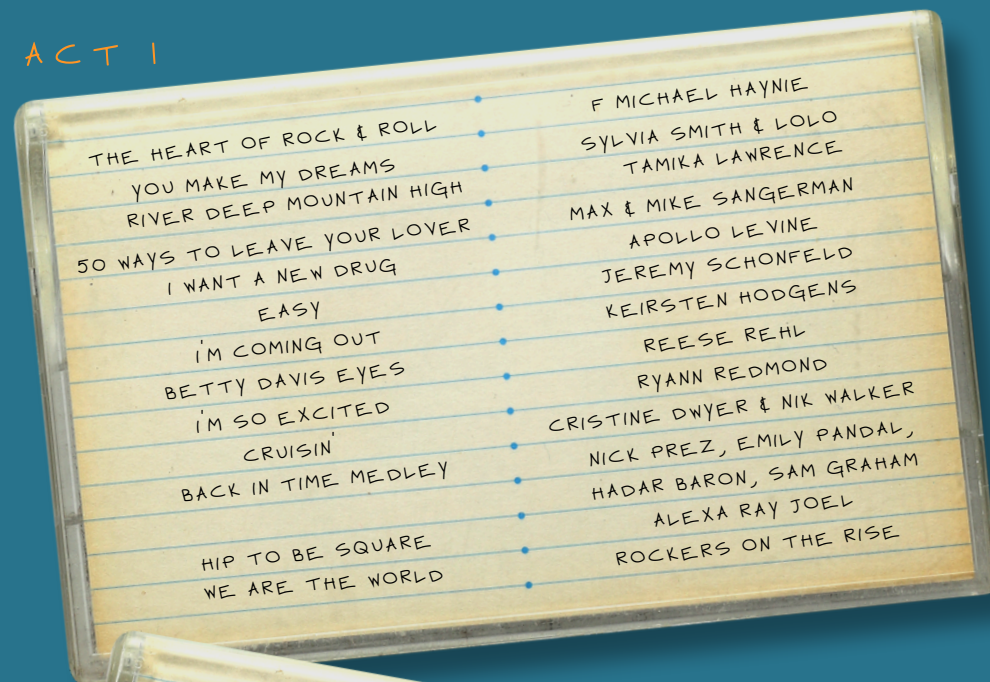 ACT 1
THE HEART OF ROCK & ROLL F MICHAEL HAYNIE
YOU MAKE MY DREAMS SYLVIA SMITH & LOLO
RIVER DEEP MOUNTAIN HIGH TAMIKA LAWRENCE
50 WAYS TO LEAVE YOUR LOVER MAX & MIKE SANGERMAN
I WANT A NEW DRUG APOLLO LEVINE
EASY JEREMY SCHONFELD
I'M COMING OUT KEIRSTEN HODGENS
BETTY DAVIS EYES REESE REHL
I'M SO EXCITED RYANN REDMOND
CRUISIN' CRISTINE DWYER & NIK WALKER
BACK IN TIME MEDLEY NICK PREZ, EMILY PANDAL,
HADAR BARON, SAM GRAHAM
HIP TO BE SQUARE ALEXA RAY JOEL
WE ARE THE WORLD ROCKERS ON THE RISE